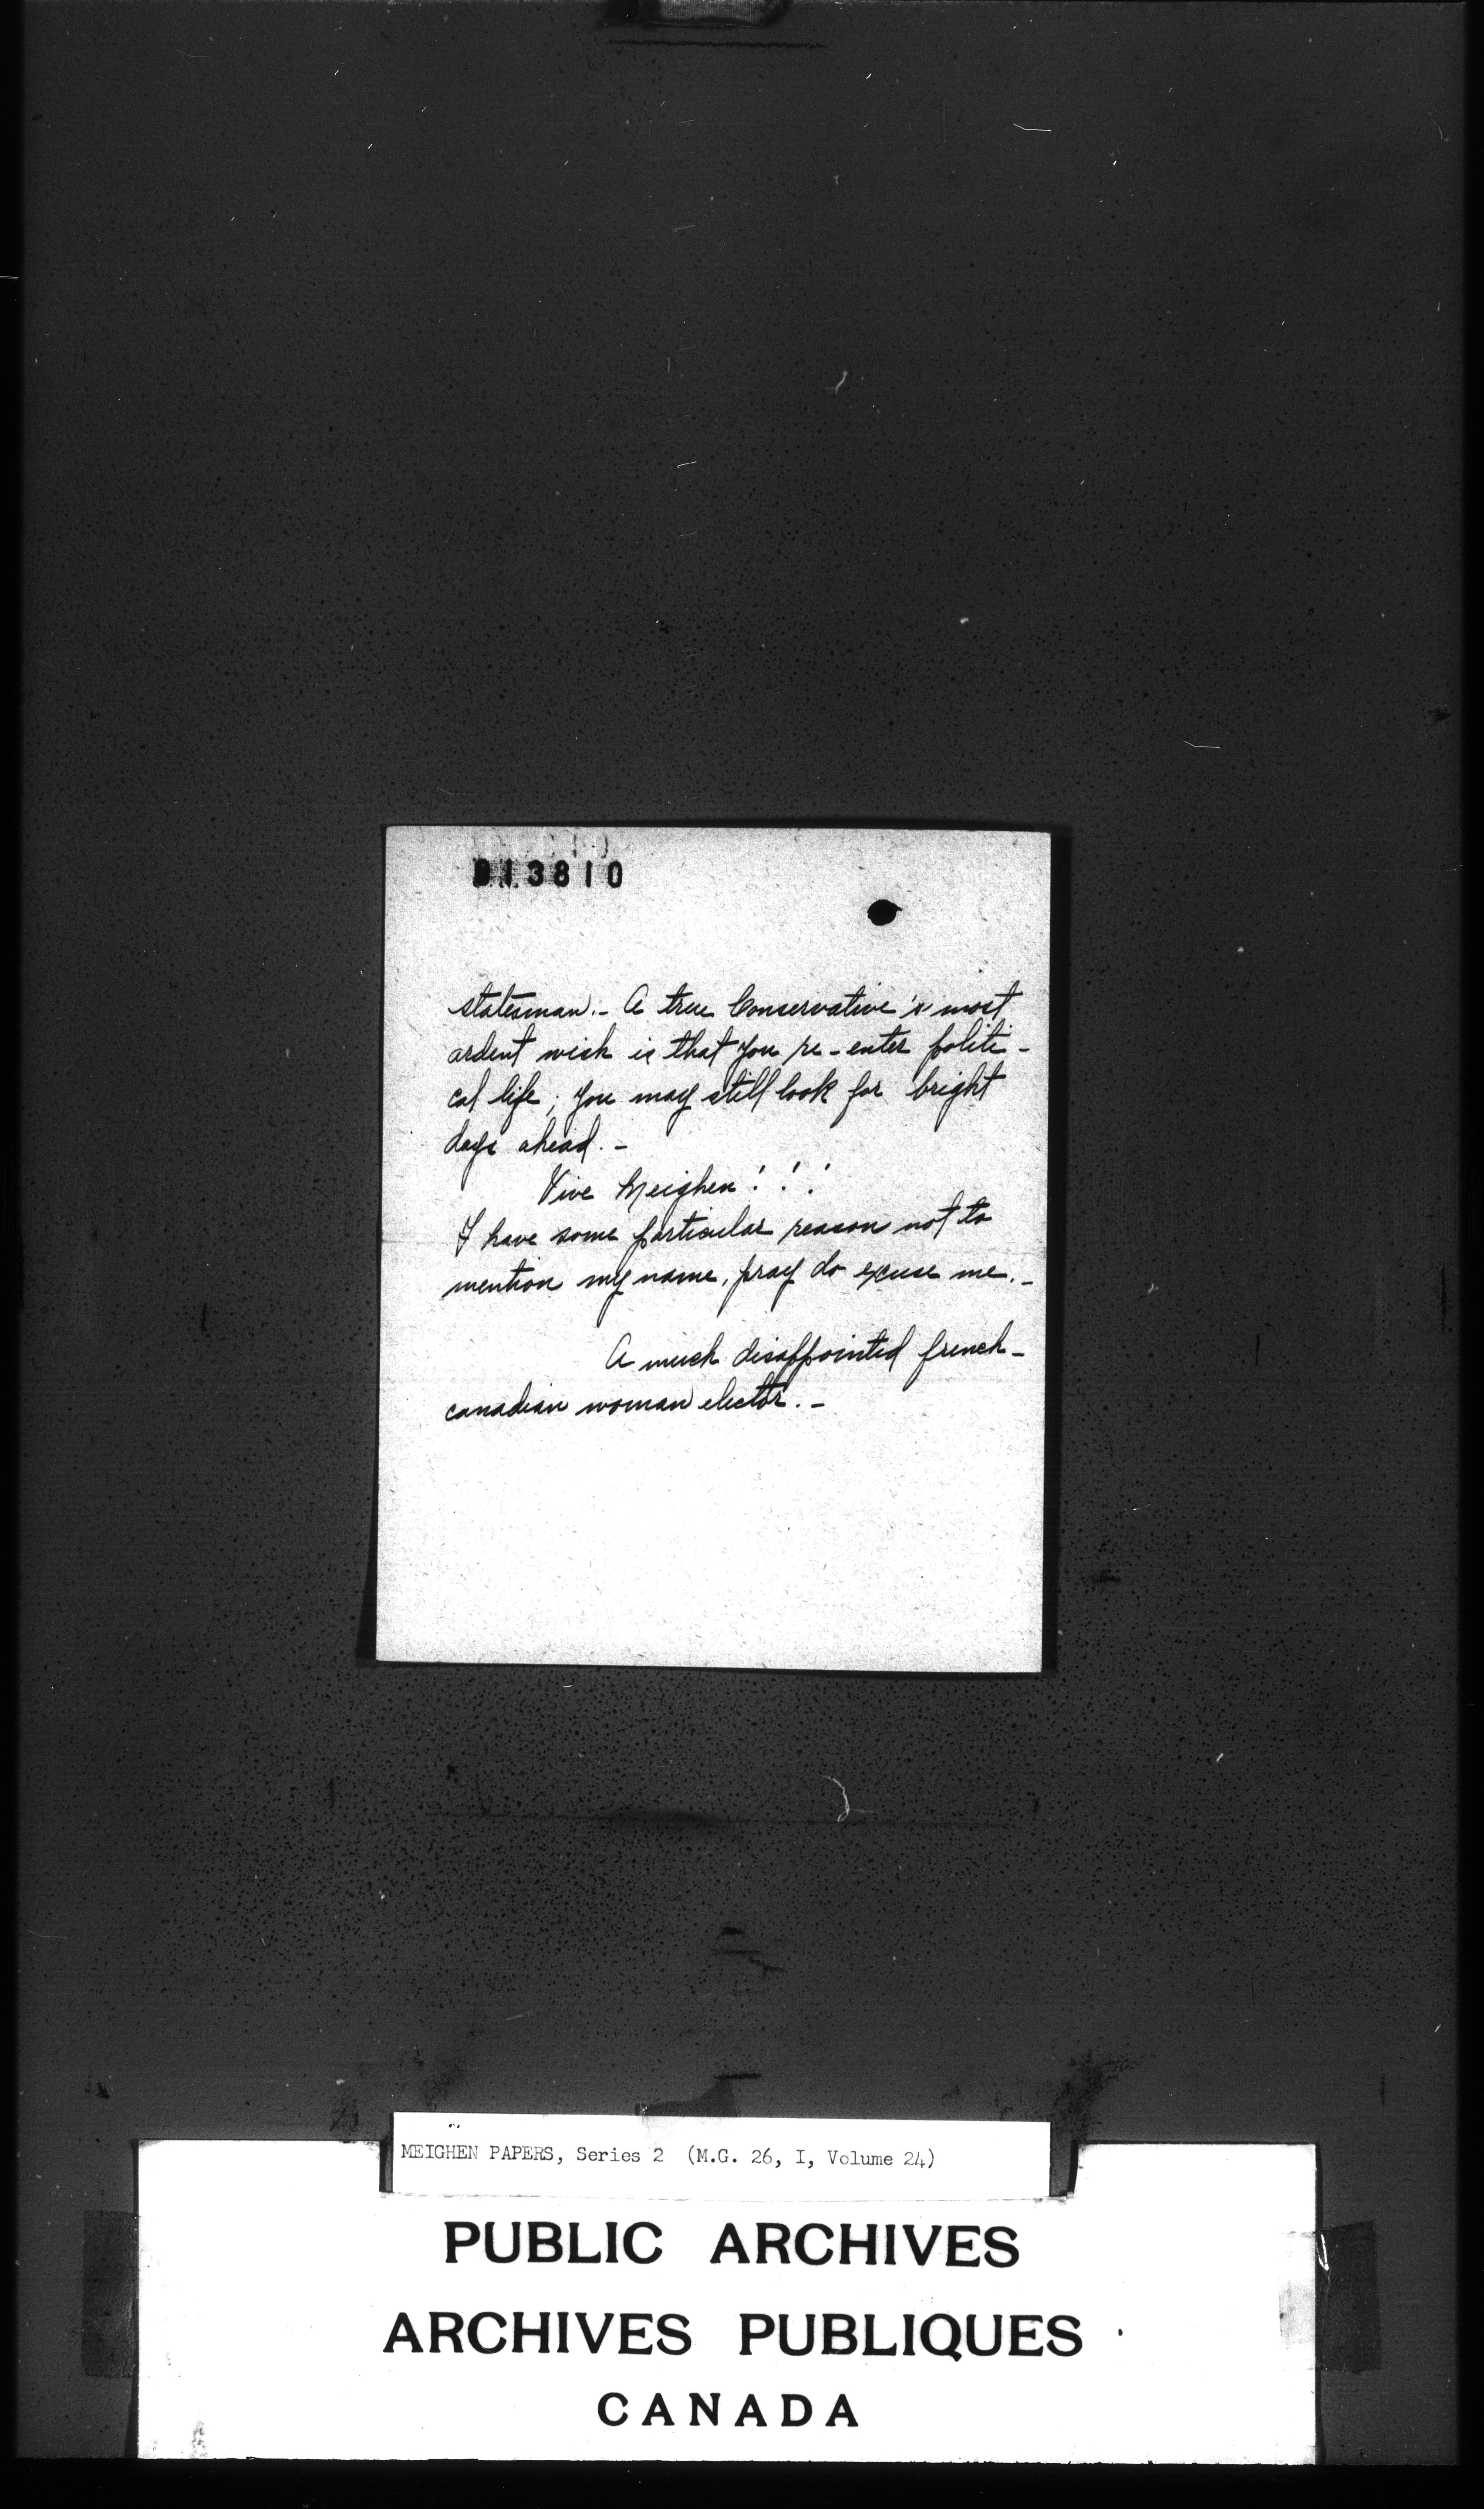 013810
statesman.- A true Conservative's most
ardent wish is that you re-enter politi-
cal life; you may still look for bright
days ahead.-
Vive Meighen!!!
I have some particular reason not to
mention my name, pray do excuse me.-
A much disappointed french-
canadian woman elector.-
MEIGHEN PAPERS, Series 2 (M.G. 26, I, Volume 24)
PUBLIC ARCHIVES
ARCHIVES PUBLIQUES
CANADA